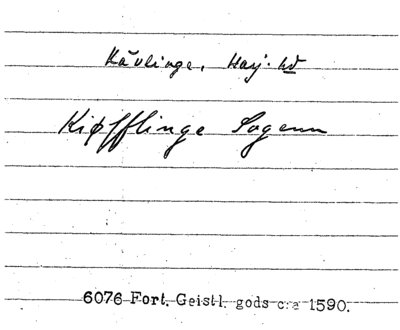 Kävlinge, Harj. hd
Kipfflinge Sogenn
6076 Fort. Geistl. gods c:a 1590.